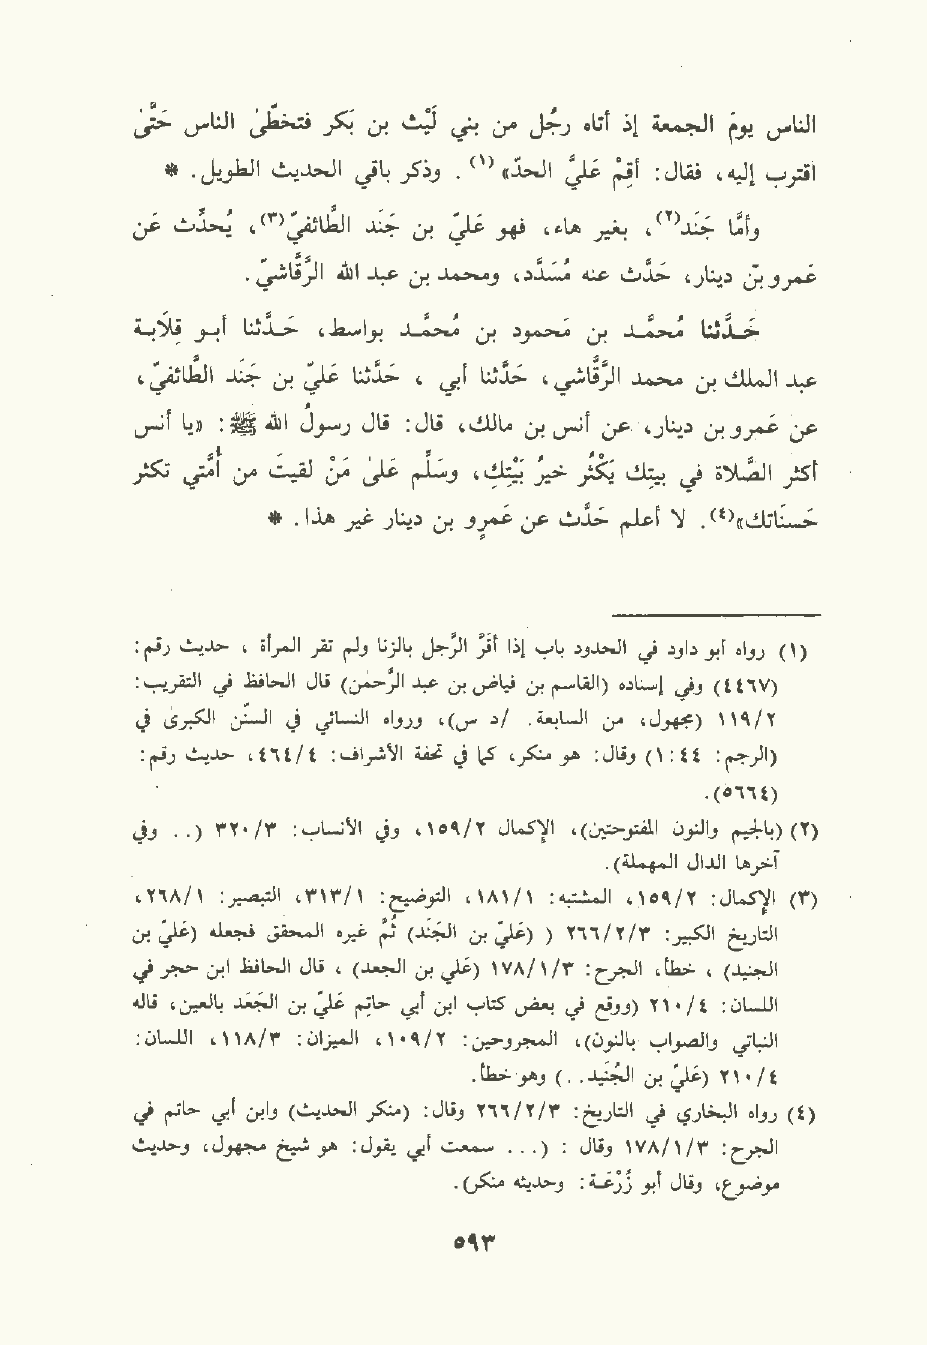 الناس يومَ الجمعة إذ أتاه رجُل من بني لَيْث بن بَكر فتخطَّىٰ الناس حَتَّىٰ
اقترب إليه، فقال: أقِمْ عليَّ الحدّ»(١). وذكر باقي الحديث الطويل. *
وأمَّا جَنَد(٢)، بغير هاء، فهو عَليّ بن جَنَد الطَّائفيّ(٣)، يُحدِّث عن
عَمرو بنّ دينار، حَدَّث عنه مُسَدَّد، ومحمد بن عبد الله الرَّقَاشيّ.
حَـدَّثنا مُحمَّـد بن مَحمود بن مُحمَّـد بواسط، حَـدَّثنا أبـو قِلَابـة
عبد الملك بن محمد الرَّقَاشي، حَدَّثنا أبي، حَدَّثنا عَليّ بن جَنَد الطَّائفيّ،
عن عَمرو بن دينار، عن أنس بن مالك، قال: قال رسولُ الله ﷺ: «يا أنس
أكثر الصَّلاة في بيتِك يَكْثُر خيرُ بَيْتِك، وسَلِّم عَلىٰ مَنْ لقيتَ من أُمَّتي تكثر
حَسنَاتك»(٤). لا أعلم حَدَّث عن عَمرٍو بن دينار غير هذا. *
(١) رواه أبو داود في الحدود باب إذا أقَرَّ الرَّجل بالزنا ولم تقر المرأة، حديث رقم:
(٤٤٦٧) وفي إسناده (القاسم بن فياض بن عبد الرَّحمن) قال الحافظ في التقريب:
١١٩/٢ (مجهول، من السابعة. /د س)، ورواه النسائي في السنّن الكبرى في
(الرجم: ٤٤: ١) وقال: هو منكر، كما في تحفة الأشراف: ٤٦٤/٤، حديث رقم:
(٥٦٦٤).
(٢) (بالجيم والنون المفتوحتين)، الإكمال ١٥٩/٢، وفي الأنساب: ٣٢٠/٣ (.. وفي
آخرها الدال المهملة).
(٣) الإكمال: ١٥٩/٢، المشتبه: ١٨١/١، التوضيح: ٣١٣/١، التبصير: ٢٦٨/١،
التاريخ الكبير: ٢٦٦/٢/٣ ( (عَليّ بن الجَنَد) ثُمَّ غيره المحقق فجعله (عَليّ بن
الجنيد)، خطأ، الجرح: ١٧٨/١/٣ (عَلي بن الجعد)، قال الحافظ ابن حجر في
اللسان: ٢١٠/٤ (ووقع في بعض كتاب ابن أبي حاتِم عَليّ بن الجَعَد بالعين، قاله
النباتي والصواب بالنون)، المجروحين: ١٠٩/٢، الميزان: ١١٨/٣، اللسان:
٢١٠/٤ (عَليّ بن الجُنَيد..) وهو خطأ.
(٤) رواه البخاري في التاريخ: ٢٦٦/٢/٣ وقال: (منكر الحديث) وابن أبي حاتم في
الجرح: ١٧٨/١/٣ وقال : (... سمعت أبي يقول: هو شيخ مجهول، وحديث
موضوع، وقال أبو زُرْعَـة: وحديثه منكر).
٥٩٣